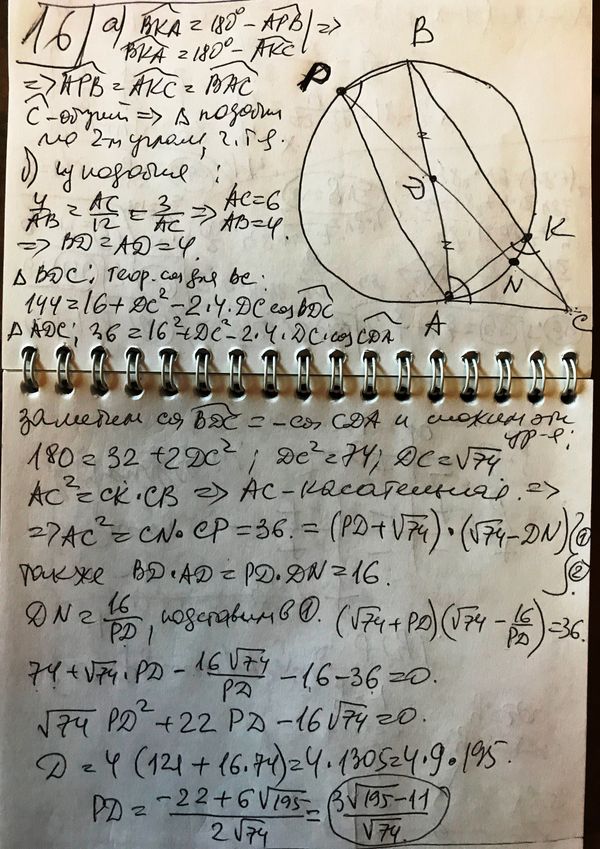 16 а) BKA = 180° - APB | =>
BKA = 180° - AKC
=> APB = AKC = BAC
C - общий => Δ подобны
по 2-м углам, ч.т.д.
б) из подобия :
4/AB = AC/12 = 3/AC => AC=6
AB=4.
=> BD = AD = 4.
Δ BDC; теор. cos для BC:
144 = 16 + DC² - 2·4·DC cos BDC
Δ ADC; 36 = 16² + DC² - 2·4·DC·cos CDA
P
B
D
K
N
A
C
заметим cos BDC = - cos CDA и сложим эти
ур-я;
180 = 32 + 2DC² ; DC² = 74; DC = √74
AC² = CK·CB => AC - касательная. =>
=> AC² = CN·CP = 36. = (PD+√74)·(√74-DN) ①
также BD·AD = PD·DN = 16. ②
DN = 16/PD, подставим в ①. (√74+PD)(√74 - 16/PD) = 36.
74 + √74·PD - 16√74/PD - 16 - 36 = 0.
√74 PD² + 22 PD - 16√74 = 0.
D = 4 (121 + 16·74) = 4·1305 = 4·9·195.
PD = (-22 + 6√195)/(2√74) = (3√195 - 11)/√74.